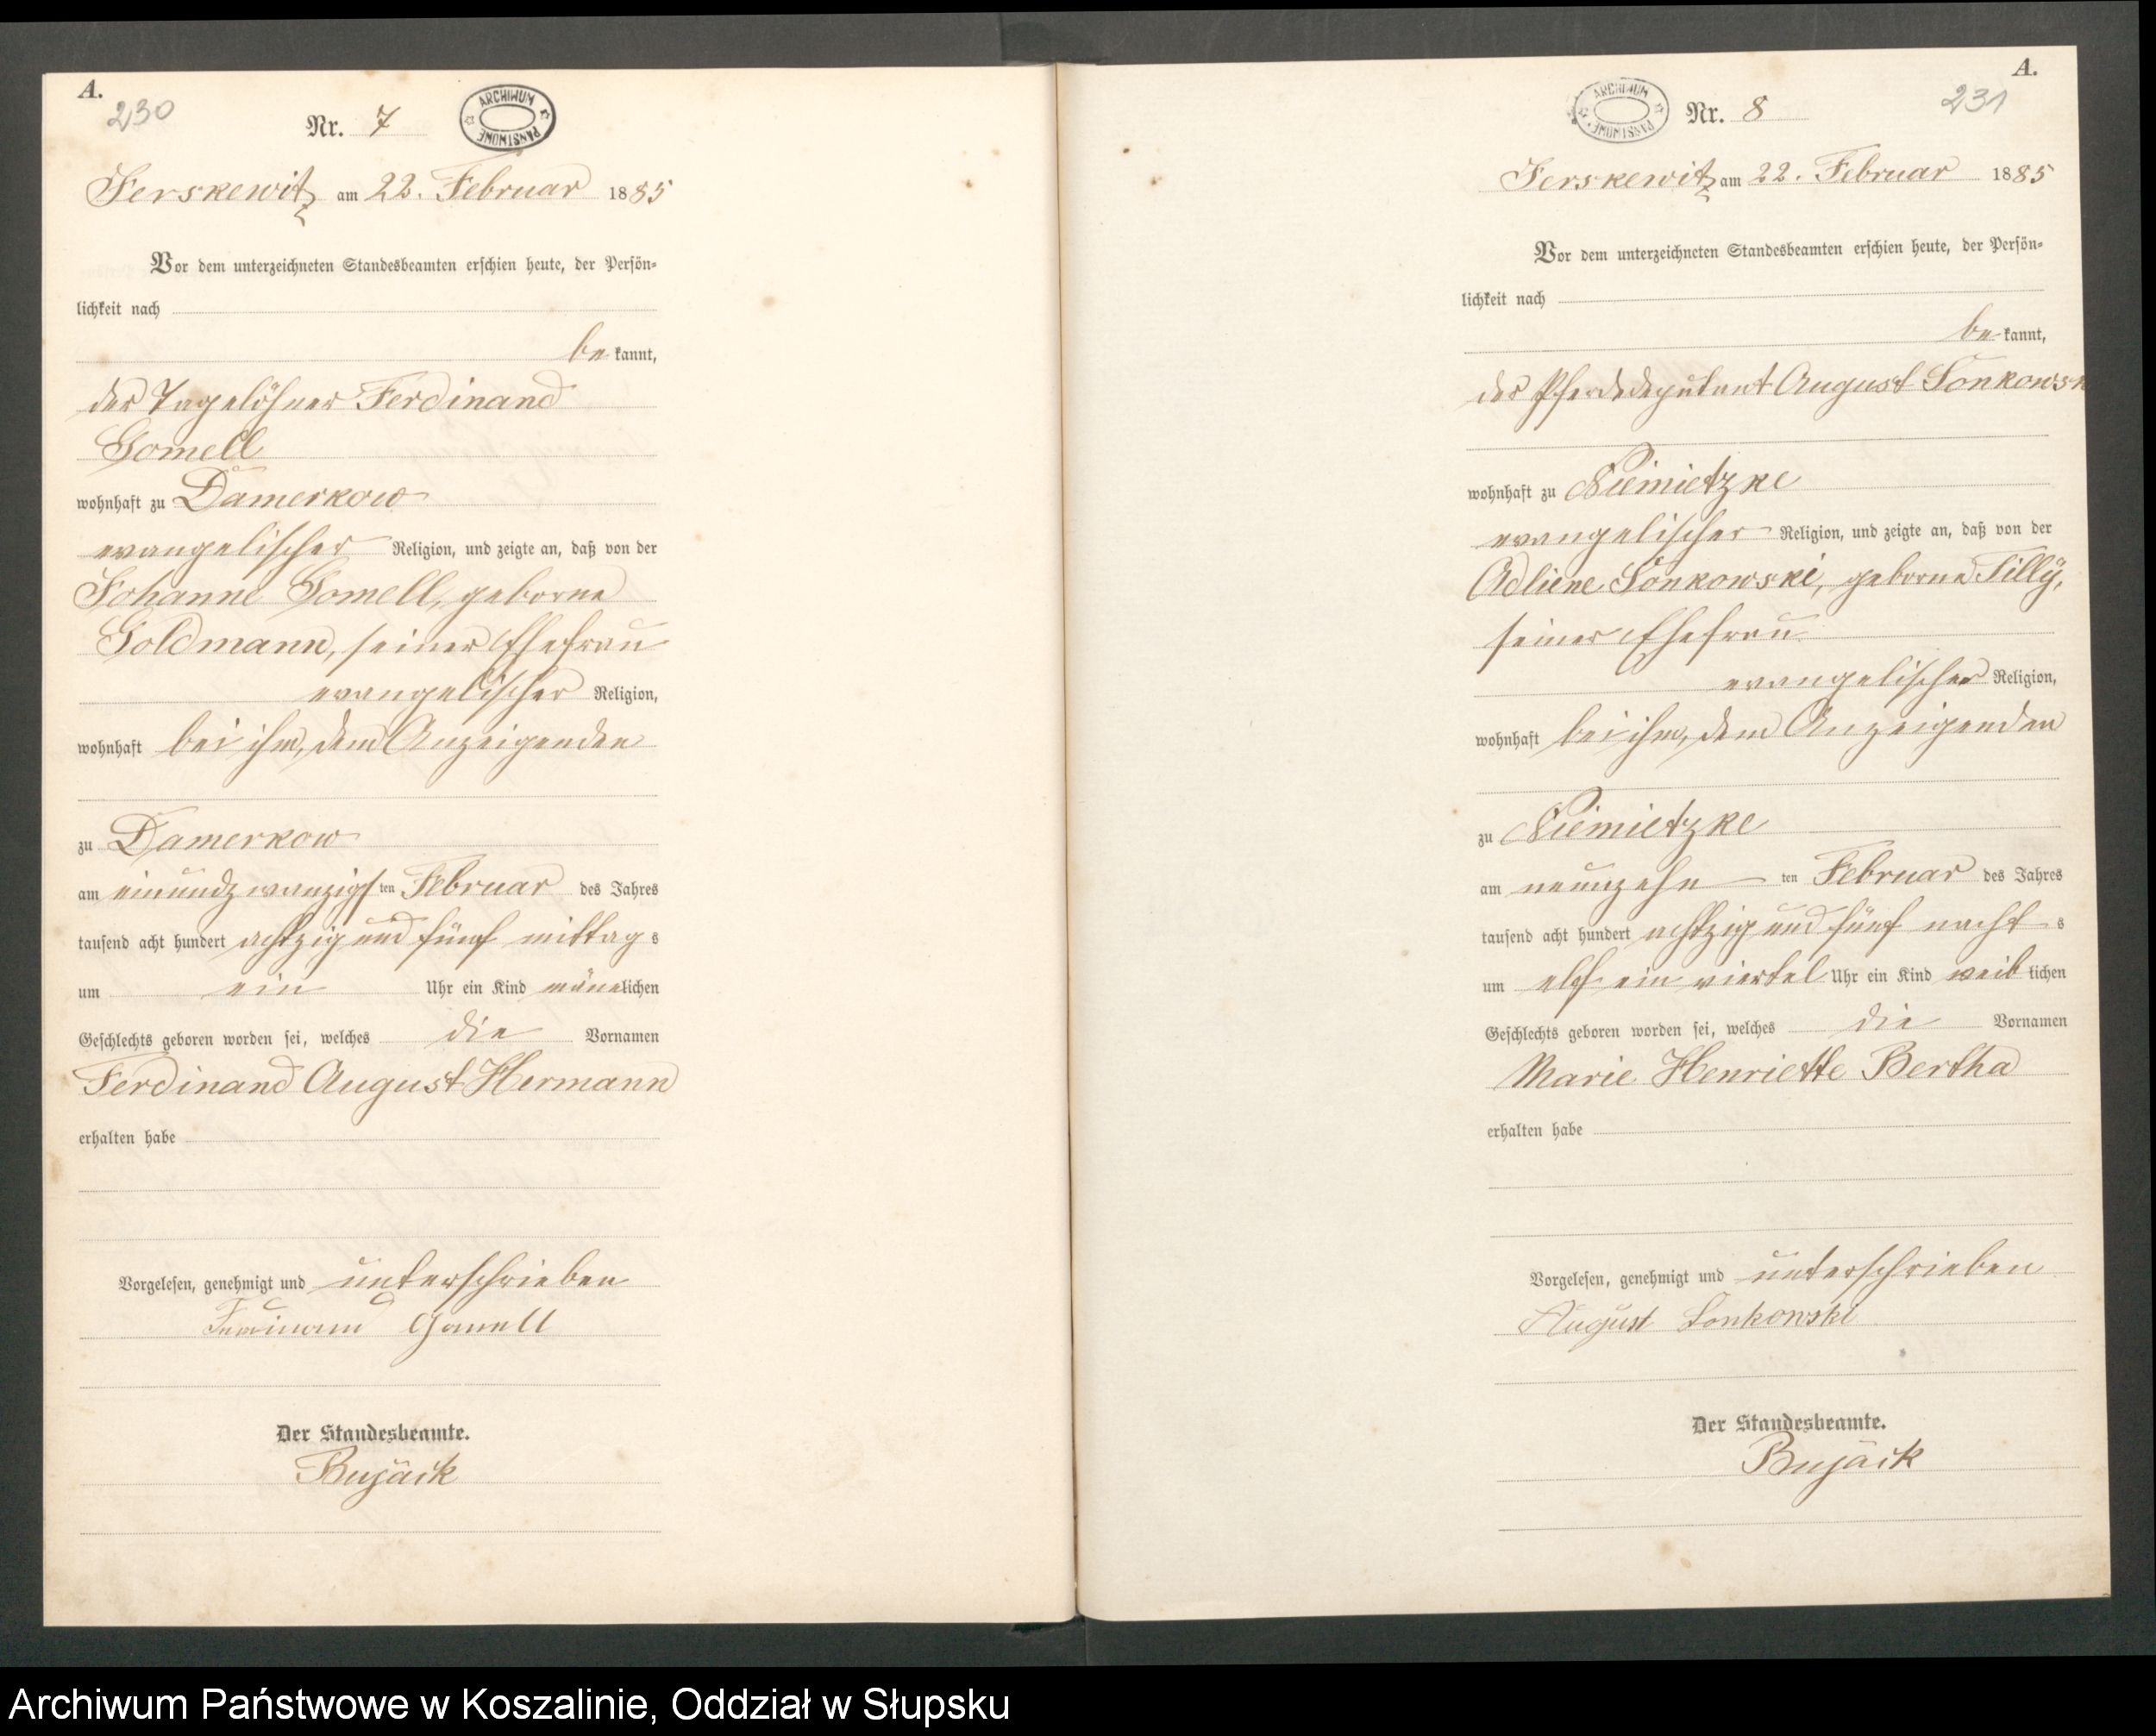 A.
230
Nr. 7
ARCHIWUM PAŃSTWOWE
Jerskewitz am 22. Februar 1885
Vor dem unterzeichneten Standesbeamten erschien heute, der Persön-
lichkeit nach
be kannt,
der Tagelöhner Ferdinand
Gomell
wohnhaft zu Damerkow
evangelischer Religion, und zeigte an, daß von der
Johanne Gomell, geborne
Goldmann, seiner Ehefrau
evangelischer Religion,
wohnhaft bei ihm, dem Anzeigenden
zu Damerkow
am einundzwanzigsten Februar des Jahres
tausend acht hundert achtzig und fünf mittags
um ein Uhr ein Kind männlichen
Geschlechts geboren worden sei, welches die Vornamen
Ferdinand August Hermann
erhalten habe
Vorgelesen, genehmigt und unterschrieben
Ferdinand Gomell
Der Standesbeamte.
Bujäck
A.
231
ARCHIWUM PAŃSTWOWE
Nr. 8
Jerskewitz am 22. Februar 1885
Vor dem unterzeichneten Standesbeamten erschien heute, der Persön-
lichkeit nach
be kannt,
der Pferdedeputant August Lonkowsk
wohnhaft zu Niemietzke
evangelischer Religion, und zeigte an, daß von der
Adliene Lonkowski, geborne Tilly,
seiner Ehefrau
evangelischer Religion,
wohnhaft bei ihm, dem Anzeigenden
zu Niemietzke
am neunzehn ten Februar des Jahres
tausend acht hundert achtzig und fünf nachts
um elf ein viertel Uhr ein Kind weiblichen
Geschlechts geboren worden sei, welches die Vornamen
Marie Henriette Bertha
erhalten habe
Vorgelesen, genehmigt und unterschrieben
August Lonkowski
Der Standesbeamte.
Bujäck
Archiwum Państwowe w Koszalinie, Oddział w Słupsku